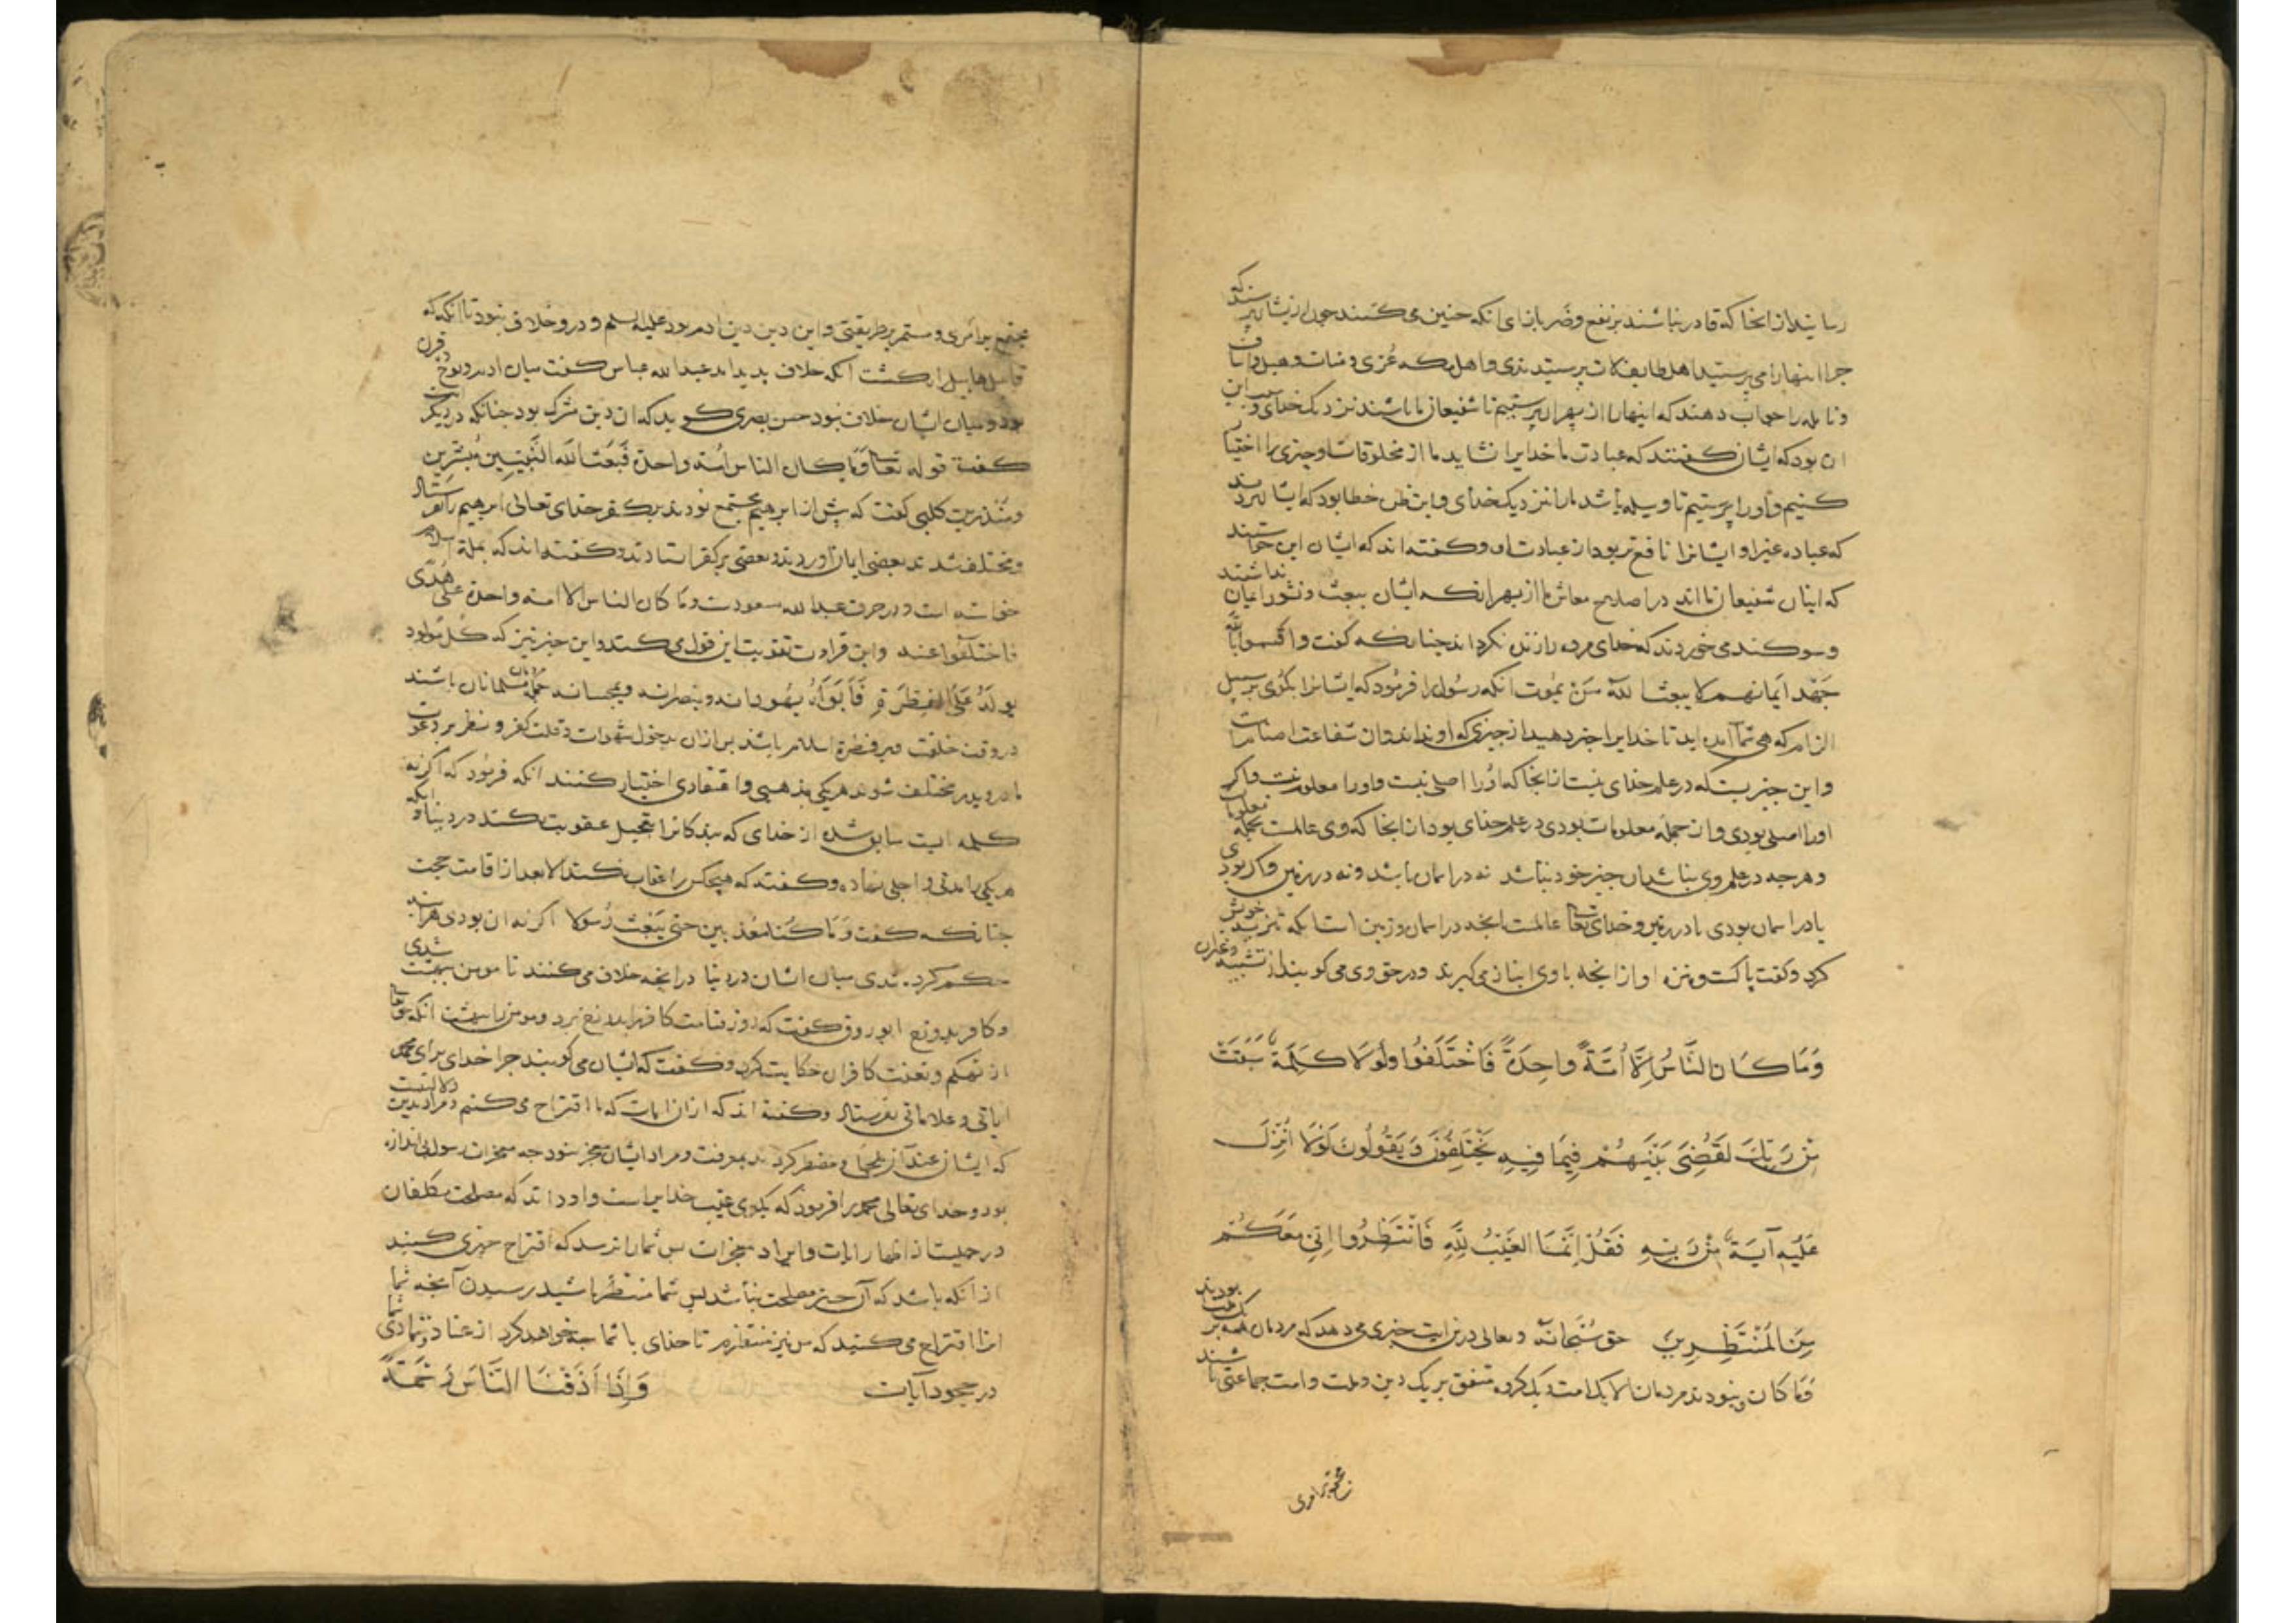 رسانیدن از انجا که قادر نباشند بر نفع و ضر بازای انکه چنین می کنند چون از یشان پرسند که
چرا اینها را می پرستید اهل طایف لات پرستیدندی و اهل مکه عزی و منات و هبل و اساف
و نایله را جواب دهند که اینها را از بهر ان پرستیم تا شفیعان ما باشند نزدیک خدای و این
ان بود که ایشان گفتند که عبادت ما خدایرا نشاید ما از مخلوقات او چیزی را اختیا
کنیم و او را پرستیم تا وسیله باشد ما را نزدیک خدای و این ظن خطا بود که ایشان بردند
که عباده غیر او ایشانرا نافع تر بود از عبادت او و گفته اند که ایشان این خواستند
که اینان شفیعان مااند در اصلاح معاش ما از بهر انکه ایشان ببعث و نشور ایمان نداشتند
و سوکند می خوردند که خدای مرده را زنده نکرداند چنانکه گفت و اقسموا بالله
جهد ایمانهم لا یبعث الله من یموت انکه رسول را فرمود که ایشانرا بکوی بر سبیل
الزام که هی شما امده اید تا خدایرا خبر دهید از چیزی که او نداند و ان شفاعت اصنام است
و این چیزیست که در علم خدای نیست از انجا که او را اصلی نیست و او را معلوم نیست و اکر
او را اصلی بودی و از جمله معلومات بودی در علم خدای بودی از انجا که وی عالمست بجمله معلومات
و هر چه در علم وی نباشد ان چیز خود نباشد نه در اسمان باشد و نه در زمین و اکر بودی
یا در اسمان بودی یا در زمین و خدای تعالی عالمست بانچه در اسمان و زمین است انکه تنزیه خویش
کرد و گفت پاکست و منزه او از انچه با وی انباز می کیرند و در حق وی می کویند از تشبیه و غیر ان
وَمَا كَانَ النَّاسُ إِلَّا أُمَّةً وَاحِدَةً فَاخْتَلَفُوا وَلَوْلَا كَلِمَةٌ سَبَقَتْ
مِنْ رَبِّكَ لَقُضِيَ بَيْنَهُمْ فِيمَا فِيهِ يَخْتَلِفُونَ وَيَقُولُونَ لَوْلَا أُنْزِلَ
عَلَيْهِ آيَةٌ مِنْ رَبِّهِ فَقُلْ إِنَّمَا الْغَيْبُ لِلَّهِ فَانْتَظِرُوا إِنِّي مَعَكُمْ
مِنَ الْمُنْتَظِرِينَ حق سُبحانه و تعالی درین ایت خبری می دهد که مردمان همه بر یک ملت بودند
وَمَا كَانَ و نبودند مردمان الا یک امت و یک کروه متفق بر یک دین و ملت و امت جماعتی باشند
مجتمع بر امری و مستمر بر طریقتی و این دین دین ادم بود علیه السلم و درو خلاف نبود تا انکه که
قابیل هابیل را بکشت انکه خلاف پدید امد عبدالله عباس گفت میان ادم و نوح ده قرن
بود و میان ایشان خلاف نبود حسن بصری کوید که ان دین شرک بود چنانکه در دیگر ایت
گفت قوله تعالی وَمَا كان الناس امة واحدة فَبَعَثَ الله النَّبِيِّينَ مُبَشِّرِينَ
ومنذرین کلبی گفت که پیش از ابرهیم مجتمع بودند بر کفر خدای تعالی ابرهیم را بفرستاد
و مختلف شدند بعضی ایمان اوردند و بعضی بر کفر استادند و گفته اند که بملة اسلام
خواسته است و در حرف عبدالله مسعودست وما كان الناس الا امة واحدة علی هُدًى
فاختلفوا عنه و این قراءت تقویت این قول می کند و این خبر نیز که کُل مَولود
یُولَدُ عَلَى الفِطرَةِ فَأَبَوَاهُ یُهَوِّدانه وینصرانه ویمجسانه جمله مسلمانان باشند
در وقت خلقت و بر فطرة اسلام باشند پس ازان بدخول شبهات و قلت فکر و نظر بر دعوت
مادر و پدر مختلف شوند هر یکی مذهبی و اعتقادی اختیار کنند انکه فرمود که اگر نه
کلمه ایست سابق شده از خدای که بندکانرا بتعجیل عقوبت نکند در دنیا و انکه
هر یکی را مدتی و اجلی نهاده و گفتند که هیچکس را عقاب نکند الا بعد از اقامت حجت
چنانکه گفت وَمَا كُنَّا مُعَذِّبِينَ حَتَّى نَبْعَثَ رَسُولا اگر نه ان بودی هراینه
حکم کرده شدی میان ایشان در دنیا در انچه خلاف می کنند تا مومن ببهشت شدی
و کافر بدوزخ ابو روق گفت که روز قیامت کافر را بدوزخ برد و مومن را ببهشت انکه تعالی
از تهکم و تعنت کافران حکایت کرد و گفت که ایشان می کویند چرا خدای برای محمد
ایاتی و علاماتی نفرستاد و گفته اند که از ان ایات که ما اقتراح می کنیم و مراد بدین دلالتیست
که ایشان عند آن ملجا و مضطر کردند بمعرفت و مراد ایشان معجز نبود چه معجزات رسول بی اندازه
بود و خدای تعالی محمد را فرمود که بکوی غیب خدایراست و او داند که مصلحت مکلفان
در چیست از اظهار ایات و ایراد معجزات پس شما را نرسد که اقتراح چیزی کنید
از انکه باشد که آن چیز مصلحت نباشد پس شما منتظر باشید رسیدن آنچه شما
انرا اقتراح می کنید که من نیز منتظرم تا خدای با شما چه خواهد کرد از عناد و تمادی شما
در جحود آیات وَإِذَا أَذَقْنَا النَّاسَ رَحْمَةً